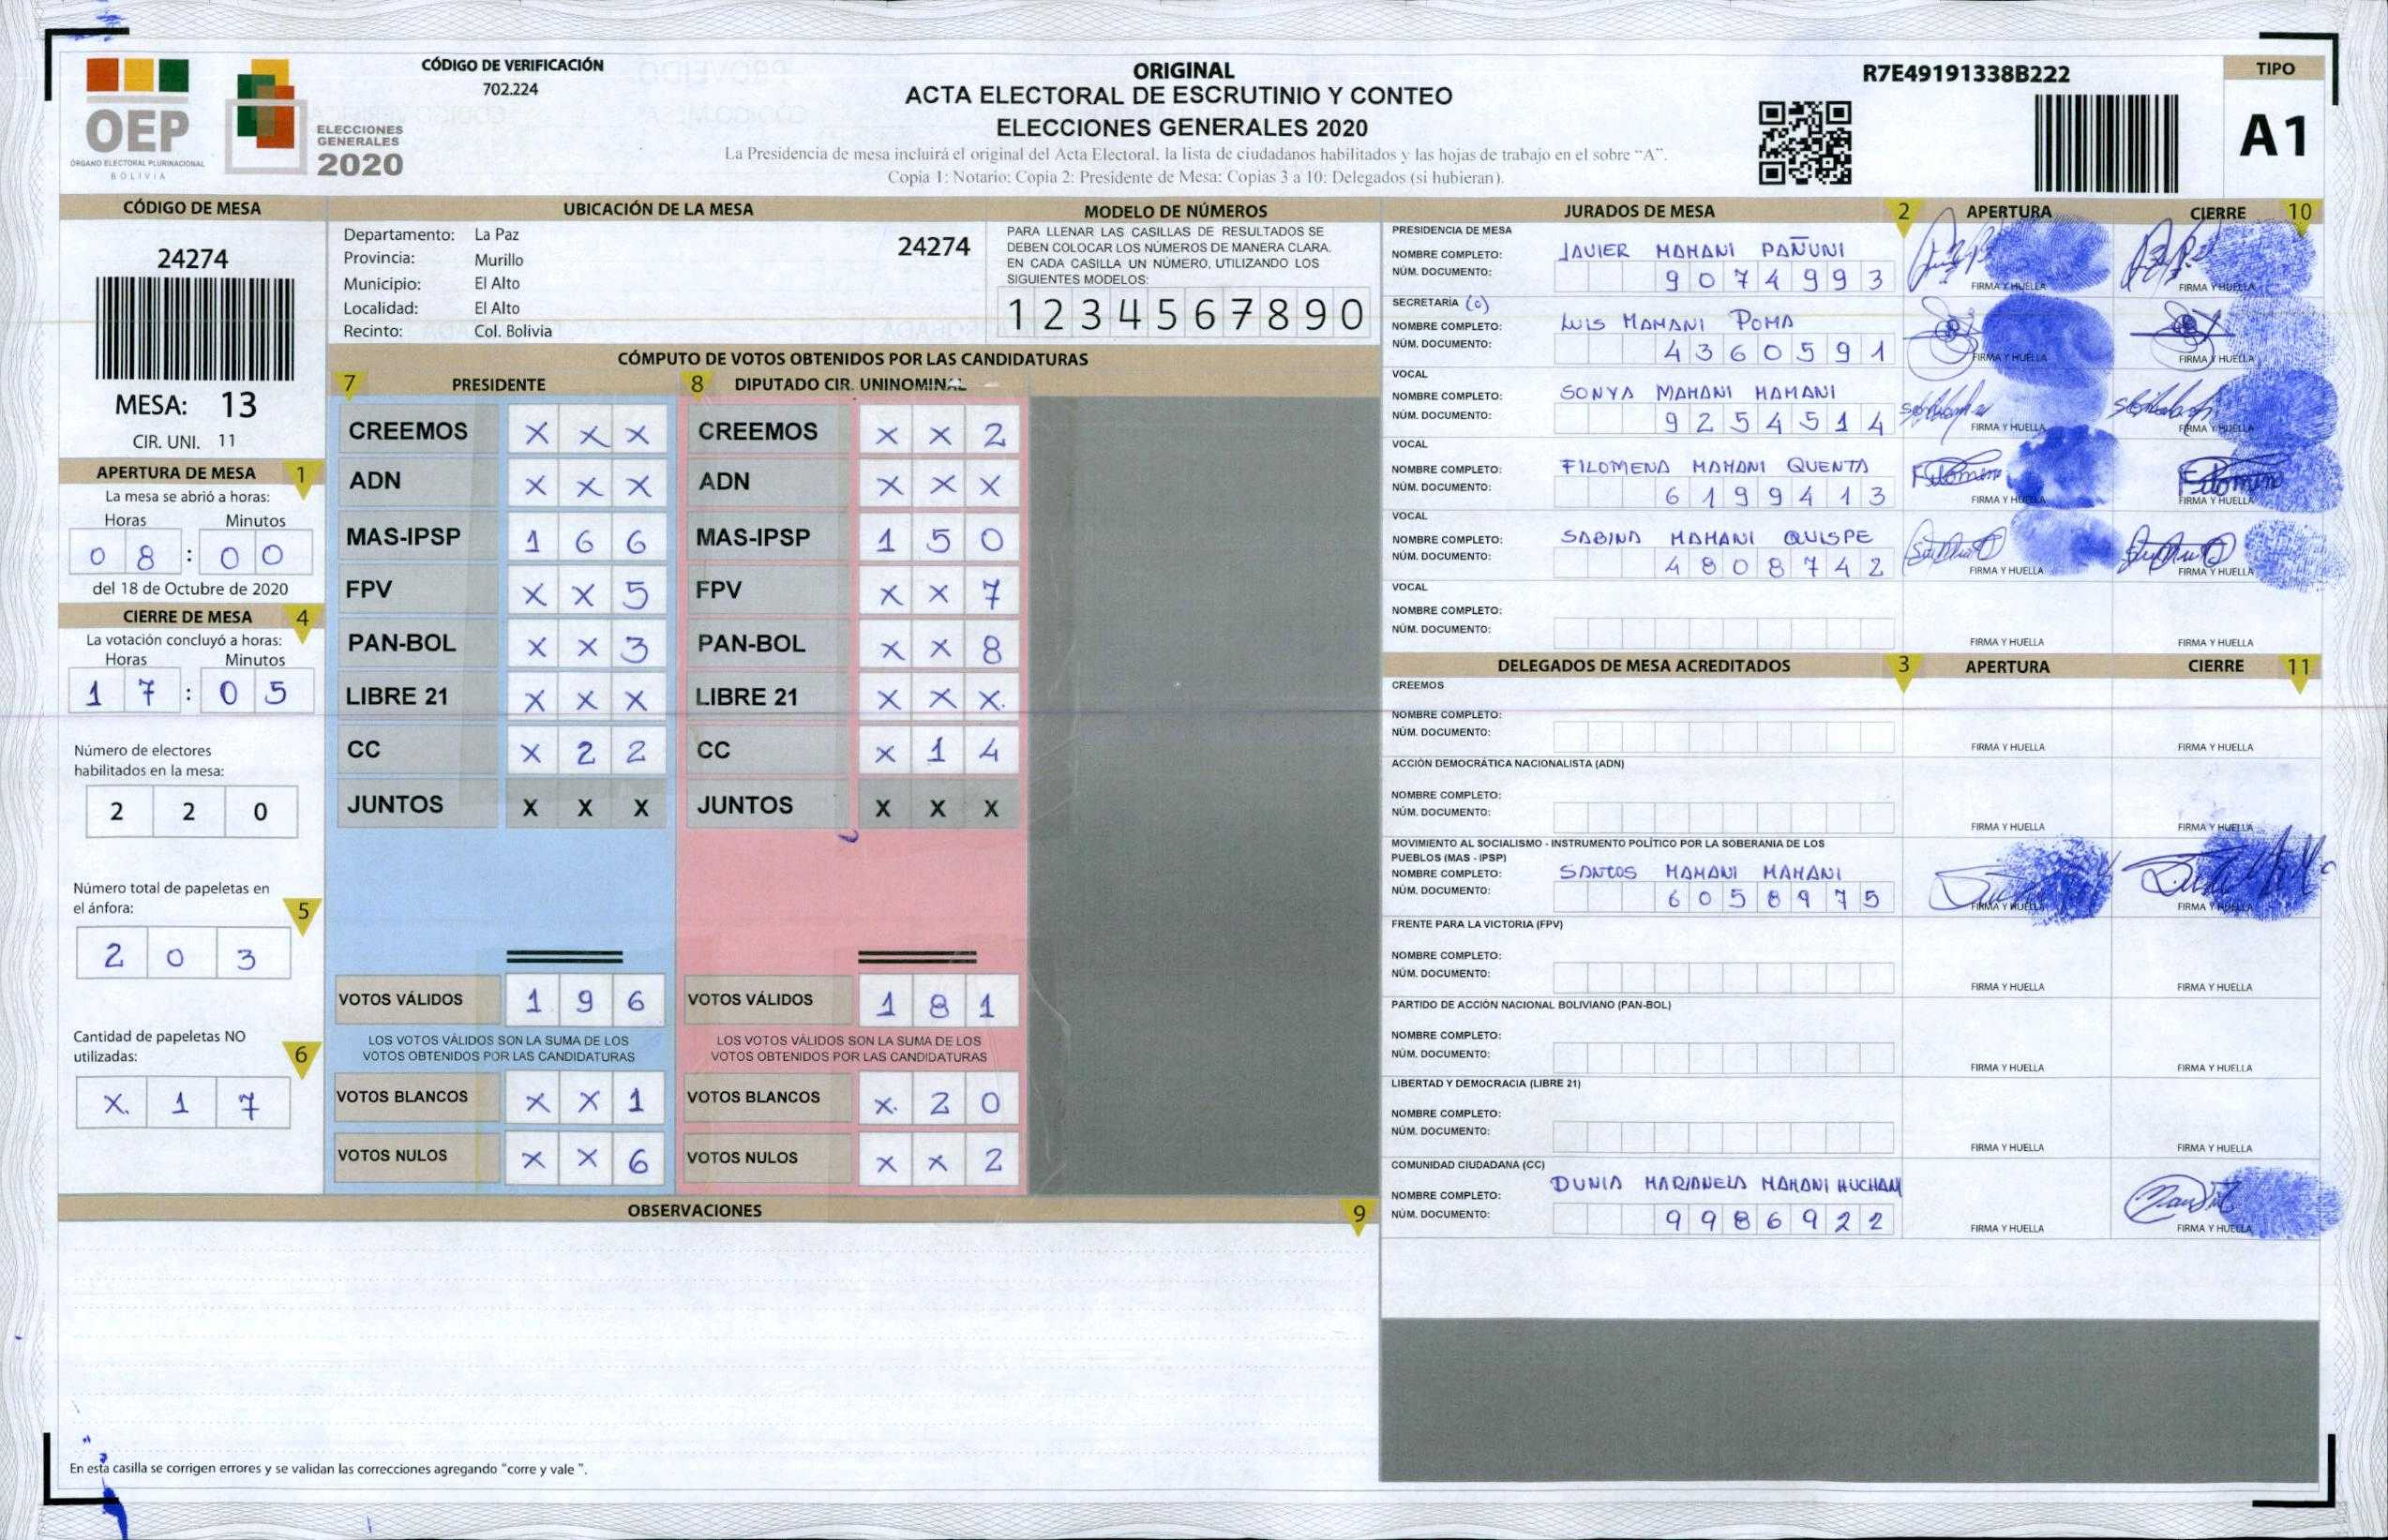 CÓDIGO DE VERIFICACIÓN
702.224
OEP
ÓRGANO ELECTORAL PLURINACIONAL
BOLIVIA
ELECCIONES
GENERALES
2020
ORIGINAL
ACTA ELECTORAL DE ESCRUTINIO Y CONTEO
ELECCIONES GENERALES 2020
La Presidencia de mesa incluirá el original del Acta Electoral, la lista de ciudadanos habilitados y las hojas de trabajo en el sobre "A".
Copia 1: Notario; Copia 2: Presidente de Mesa; Copias 3 a 10: Delegados (si hubieran).
R7E49191338B222
TIPO
A1
CÓDIGO DE MESA
24274
MESA: 13
CIR. UNI. 11
APERTURA DE MESA 1
La mesa se abrió a horas:
Horas Minutos
0 8 : 0 0
del 18 de Octubre de 2020
CIERRE DE MESA 4
La votación concluyó a horas:
Horas Minutos
1 7 : 0 5
Número de electores
habilitados en la mesa:
2 2 0
Número total de papeletas en
el ánfora: 5
2 0 3
Cantidad de papeletas NO
utilizadas: 6
X. 1 7
UBICACIÓN DE LA MESA
Departamento: La Paz
Provincia: Murillo
Municipio: El Alto
Localidad: El Alto
Recinto: Col. Bolivia
24274
MODELO DE NÚMEROS
PARA LLENAR LAS CASILLAS DE RESULTADOS SE
DEBEN COLOCAR LOS NÚMEROS DE MANERA CLARA.
EN CADA CASILLA UN NÚMERO, UTILIZANDO LOS
SIGUIENTES MODELOS:
1 2 3 4 5 6 7 8 9 0
CÓMPUTO DE VOTOS OBTENIDOS POR LAS CANDIDATURAS
7 PRESIDENTE 8 DIPUTADO CIR. UNINOMINAL
CREEMOS X X X CREEMOS X X 2
ADN X X X ADN X X X
MAS-IPSP 1 6 6 MAS-IPSP 1 5 0
FPV X X 5 FPV X X 7
PAN-BOL X X 3 PAN-BOL X X 8
LIBRE 21 X X X LIBRE 21 X X X.
CC X 2 2 CC X 1 4
JUNTOS X X X JUNTOS X X X
VOTOS VÁLIDOS 1 9 6 VOTOS VÁLIDOS 1 8 1
LOS VOTOS VÁLIDOS SON LA SUMA DE LOS LOS VOTOS VÁLIDOS SON LA SUMA DE LOS
VOTOS OBTENIDOS POR LAS CANDIDATURAS VOTOS OBTENIDOS POR LAS CANDIDATURAS
VOTOS BLANCOS X X 1 VOTOS BLANCOS X. 2 0
VOTOS NULOS X X 6 VOTOS NULOS X X 2
OBSERVACIONES 9
En esta casilla se corrigen errores y se validan las correcciones agregando "corre y vale ".
JURADOS DE MESA 2 APERTURA CIERRE 10
PRESIDENCIA DE MESA
NOMBRE COMPLETO: JAVIER MAMANI PAÑUNI
NÚM. DOCUMENTO: 9 0 7 4 9 9 3
FIRMA Y HUELLA FIRMA Y HUELLA
SECRETARÍA (o)
NOMBRE COMPLETO: LUIS MAMANI POMA
NÚM. DOCUMENTO: 4 3 6 0 5 9 1
FIRMA Y HUELLA FIRMA Y HUELLA
VOCAL
NOMBRE COMPLETO: SONYA MAMANI MAMANI
NÚM. DOCUMENTO: 9 2 5 4 5 1 4
FIRMA Y HUELLA FIRMA Y HUELLA
VOCAL
NOMBRE COMPLETO: FILOMENA MAMANI QUENTA
NÚM. DOCUMENTO: 6 1 9 9 4 1 3
FIRMA Y HUELLA FIRMA Y HUELLA
VOCAL
NOMBRE COMPLETO: SABINA MAMANI QUISPE
NÚM. DOCUMENTO: 4 8 0 8 7 4 2
FIRMA Y HUELLA FIRMA Y HUELLA
VOCAL
NOMBRE COMPLETO:
NÚM. DOCUMENTO:
FIRMA Y HUELLA FIRMA Y HUELLA
DELEGADOS DE MESA ACREDITADOS 3 APERTURA CIERRE 11
CREEMOS
NOMBRE COMPLETO:
NÚM. DOCUMENTO:
FIRMA Y HUELLA FIRMA Y HUELLA
ACCIÓN DEMOCRÁTICA NACIONALISTA (ADN)
NOMBRE COMPLETO:
NÚM. DOCUMENTO:
FIRMA Y HUELLA FIRMA Y HUELLA
MOVIMIENTO AL SOCIALISMO - INSTRUMENTO POLÍTICO POR LA SOBERANIA DE LOS
PUEBLOS (MAS - IPSP)
NOMBRE COMPLETO: SANTOS MAMANI MAMANI
NÚM. DOCUMENTO: 6 0 5 8 9 7 5
FIRMA Y HUELLA FIRMA Y HUELLA
FRENTE PARA LA VICTORIA (FPV)
NOMBRE COMPLETO:
NÚM. DOCUMENTO:
FIRMA Y HUELLA FIRMA Y HUELLA
PARTIDO DE ACCIÓN NACIONAL BOLIVIANO (PAN-BOL)
NOMBRE COMPLETO:
NÚM. DOCUMENTO:
FIRMA Y HUELLA FIRMA Y HUELLA
LIBERTAD Y DEMOCRACIA (LIBRE 21)
NOMBRE COMPLETO:
NÚM. DOCUMENTO:
FIRMA Y HUELLA FIRMA Y HUELLA
COMUNIDAD CIUDADANA (CC)
NOMBRE COMPLETO: DUNIA MARIANELA MAMANI HUCHANI
NÚM. DOCUMENTO: 9 9 8 6 9 2 2
FIRMA Y HUELLA FIRMA Y HUELLA